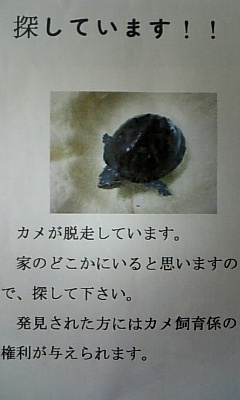 探しています！！
カメが脱走しています。
家のどこかにいると思いますの
で、探して下さい。
発見された方にはカメ飼育係の
権利が与えられます。